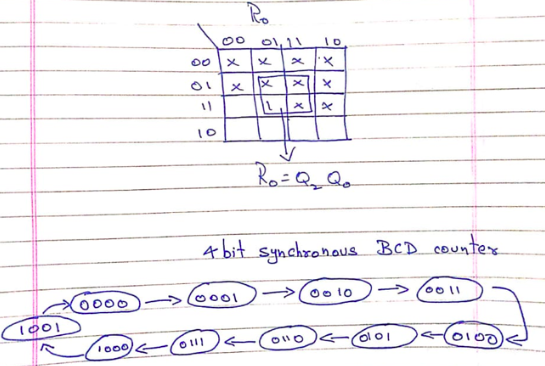 R₀
00 01 11 10
00 x x x x
01 x x x x
11 1 x x
10
R₀ = Q₂ Q₀
4 bit synchronous BCD counter
0000 → 0001 → 0010 → 0011
1001 1000 ← 0111 ← 0110 ← 0101 ← 0100